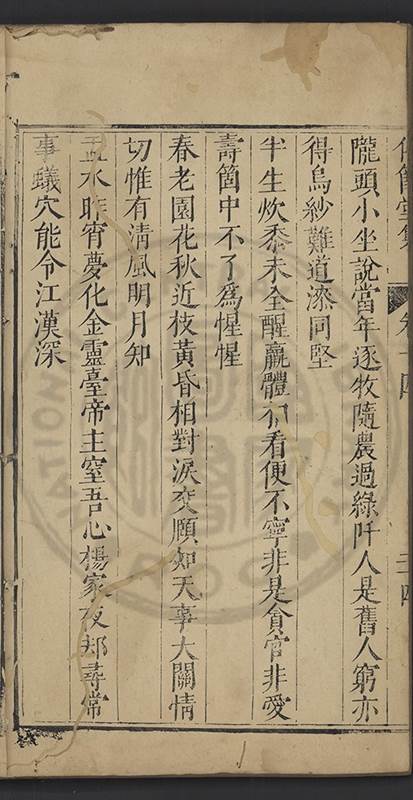 卷十四
隴頭小坐說當年逐牧隨農過綠阡人是舊人窮亦
得烏紗難道漆同堅
半生炊黍未全醒羸體
看便不寧非是貪官非愛
壽箇中不了為惺惺
春老園花秋近枝黃昏相對淚交頤如天事大關情
切惟有清風明月知
盂水昨宵夢化金靈臺帝主窒吾心楊家夜却尋常
事蟻穴能令江漢深